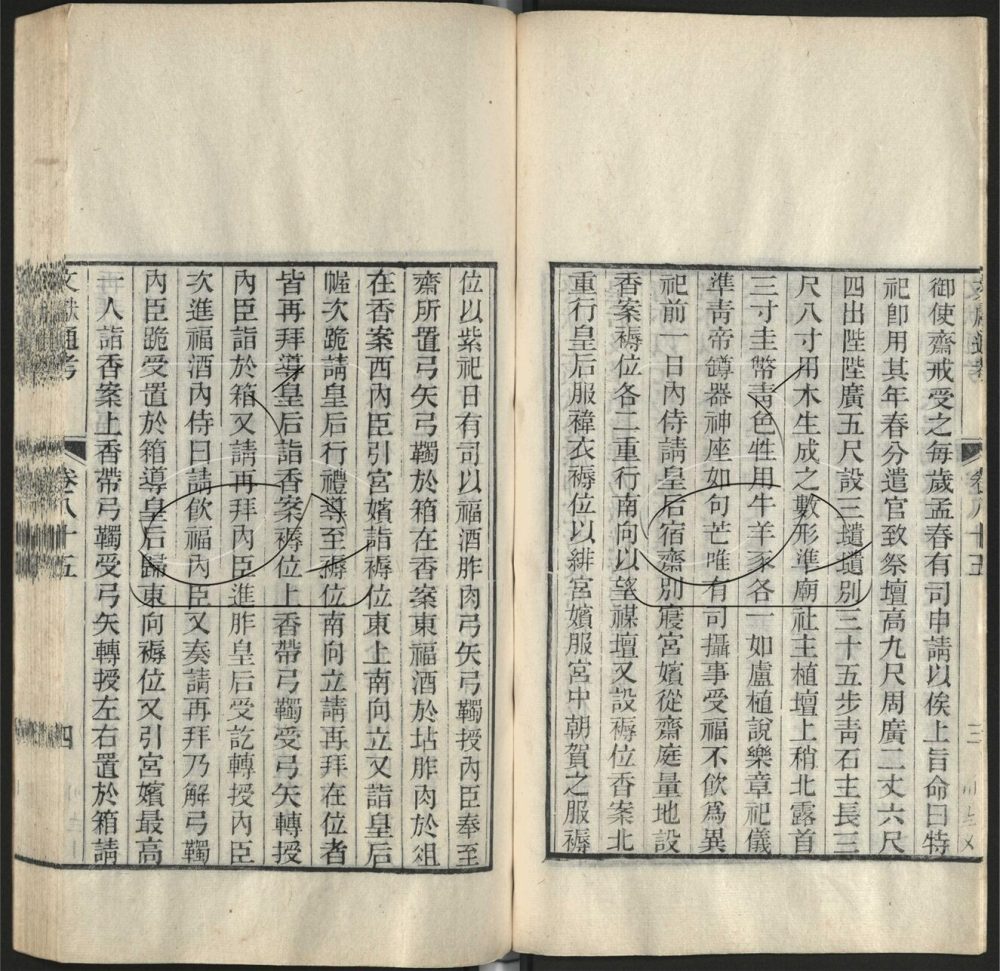 御使齋戒受之每歲孟春有司申請以俟上旨命曰特
祀卽用其年春分遣官致祭壇高九尺周廣二丈六尺
四出陛陛廣五尺設三壝壝別三十五步靑石主長三
尺八寸用木生成之數形準廟社主植壇上稍北露首
三寸圭幣靑色牲用牛羊豕各一如盧植說樂章祀儀
準靑帝罇器神座如句芒唯有司攝事受福不飮爲異
祀前一日內侍請皇后宿齋別寢宮嬪從齋庭量地設
香案褥位各二重行南向以望禖壇又設褥位香案北
重行皇后服褘衣褥位以緋宮嬪服宮中朝賀之服褥
位以紫祀日有司以福酒胙肉弓矢弓韣授內臣奉至
齋所置弓矢弓韣於箱在香案東福酒於坫胙肉於俎
在香案西內臣引宮嬪詣褥位東上南向立又詣皇后
幄次跪請皇后行禮導至褥位南向立請再拜在位者
皆再拜導皇后詣香案褥位上香帶弓韣受弓矢轉授
內臣詣於箱又請再拜內臣進胙皇后受訖轉授內臣
次進福酒內侍曰請飮福內臣又奏請再拜乃解弓韣
內臣跪受置於箱導皇后歸東向褥位又引宮嬪最高
一人詣香案上香帶弓韣受弓矢轉授左右置於箱請
文獻通考
卷八十五
四